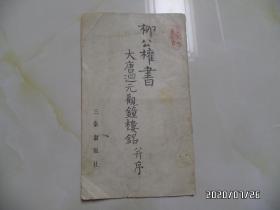 柳公權書
大唐迴元觀鐘樓銘并序
三秦出版社
2020/07/26